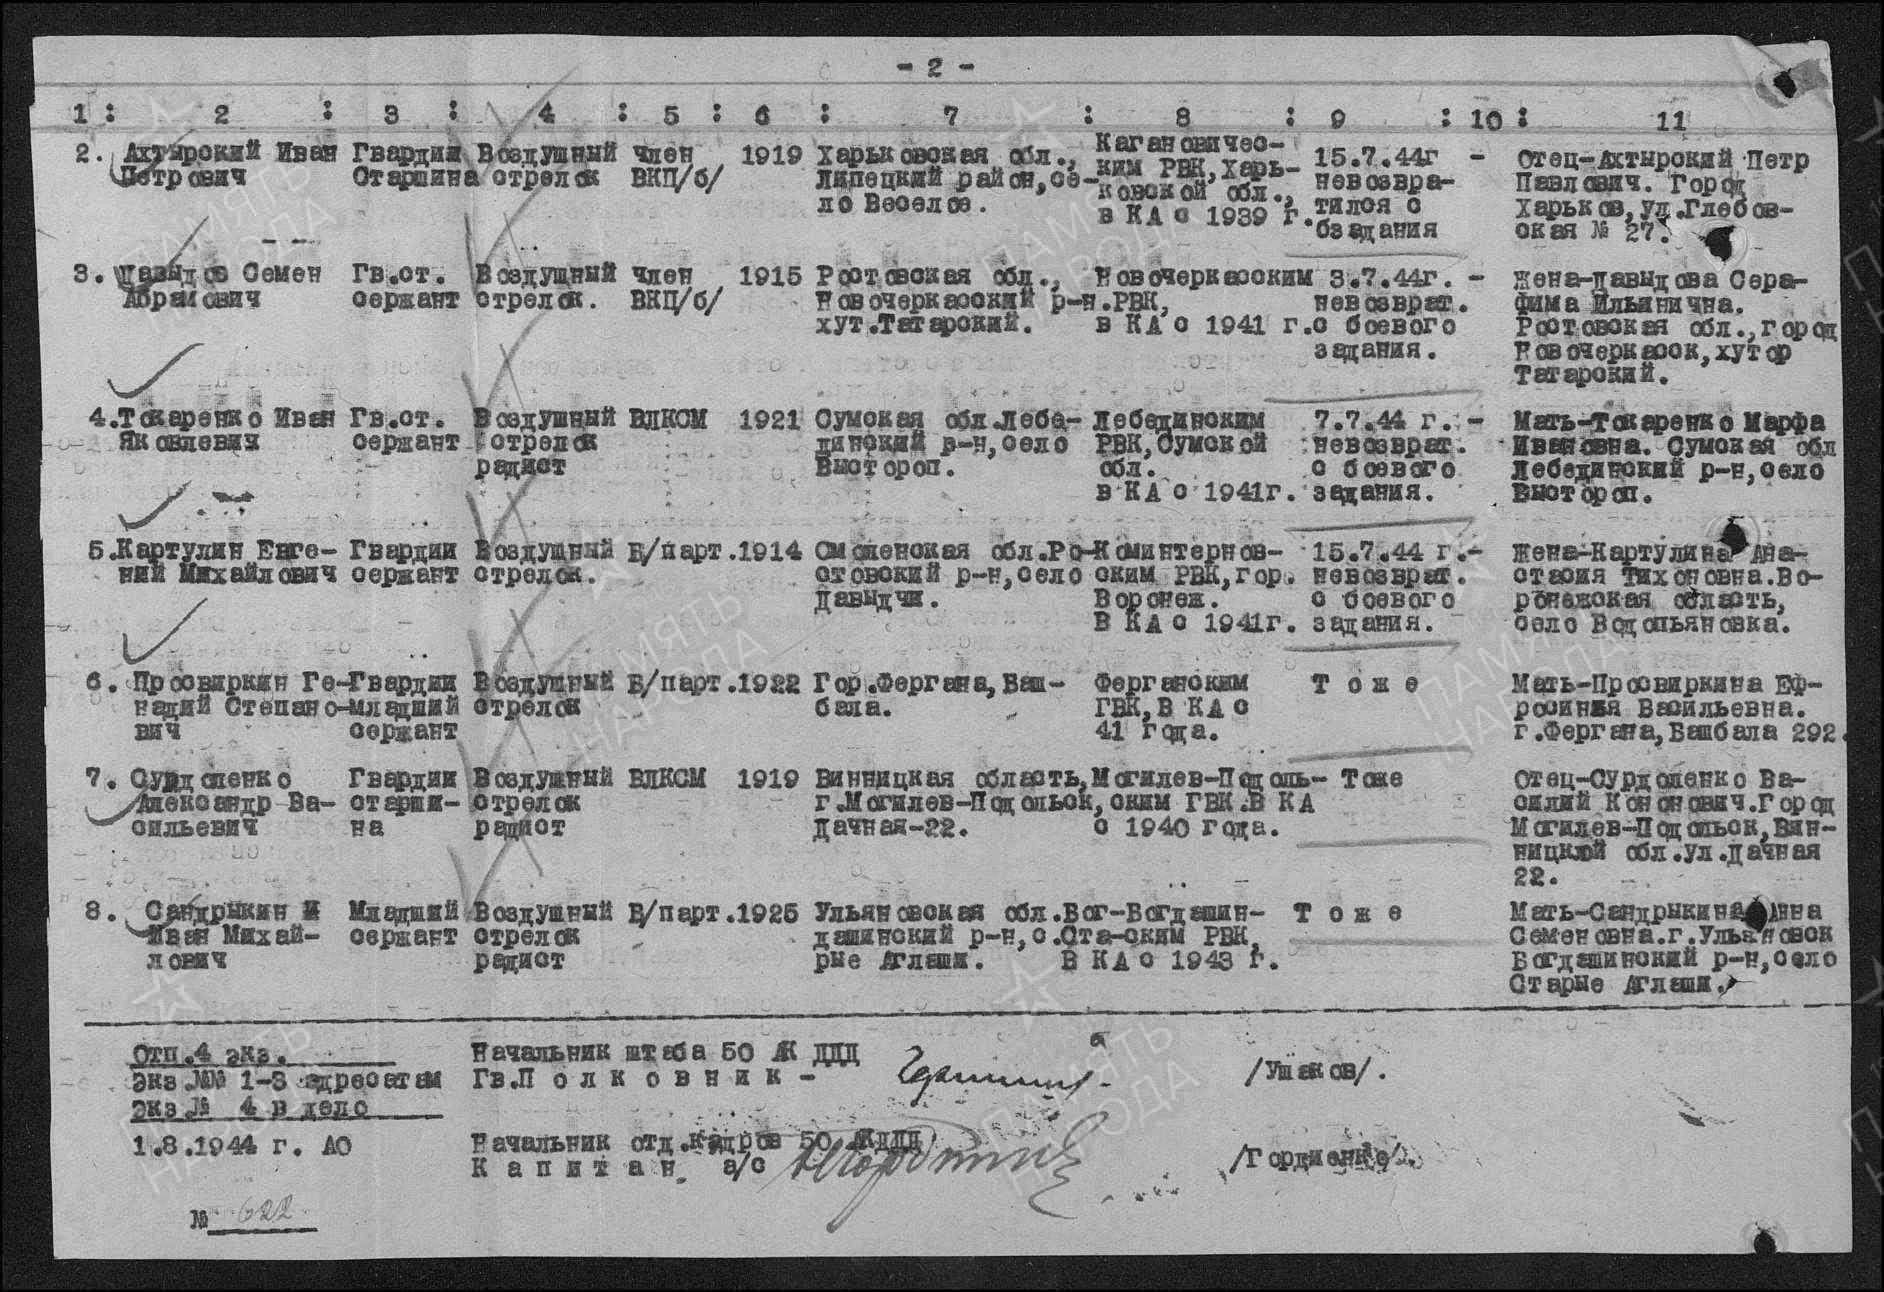 - 2 -
1 : 2 : 3 : 4 : 5 : 6 : 7 : 8 : 9 : 10 : 11
2. Ахтырский Иван Петрович
Гвардии Старшина
Воздушный стрелок
член ВКП/б/
1919
Харьковская обл.,
Липецкий район, се-
ло Веселое.
Кагановичес-
ким РВК, Харь-
ковской обл.,
в КА с 1939 г.
15.7.44г
невозвра-
тился с
бзадания
-
Отец-Ахтырский Петр
Павлович. Город
Харьков, ул.Глебов-
ская № 27.
3. Давыдов Семен
Абрамович
Гв.ст.
сержант
Воздушный
стрелок.
член
ВКП/б/
1915
Ростовская обл.,
Новочеркасский р-н.
хут.Татарский.
Новочеркасским
РВК,
в КА с 1941 г.
3.7.44г.
невозврат.
с боевого
задания.
-
Жена-Давыдова Сера-
фима Ильинична.
Ростовская обл., город
Новочеркасск, хутор
Татарский.
4. Токаренко Иван
Яковлевич
Гв.ст.
сержант
Воздушный
стрелок
радист
ВЛКСМ
1921
Сумская обл.Лебе-
динский р-н, село
Выстороп.
Лебединским
РВК, Сумской
обл.
в КА с 1941г.
7.7.44 г.
невозврат.
с боевого
задания.
-
Мать-Токаренко Марфа
Ивановна. Сумская обл
Лебединский р-н, село
Выстороп.
5. Картулин Евге-
ний Михайлович
Гвардии
сержант
Воздушный
стрелок.
Б/парт.
1914
Смоленская обл.Ро-
стовский р-н, село
Давыдчи.
Коминтернов-
ским РВК, гор.
Воронеж.
В КА с 1941г.
15.7.44 г.
невозврат.
с боевого
задания.
-
Жена-Картулина Ана-
стасия Тихоновна.Во-
ронежская область,
село Водопьяновка.
6. Просвиркин Ге-
надий Степано-
вич
Гвардии
младший
сержант
Воздушный
стрелок
Б/парт.
1922
Гор.Фергана, Баш-
бала.
Ферганским
ГВК, В КА с
41 года.
Т о ж е
Мать-Просвиркина Еф-
росиния Васильевна.
г.Фергана, Башбала 292.
7. Сурдоленко
Александр Ва-
сильевич
Гвардии
старши-
на
Воздушный
стрелок
радист
ВЛКСМ
1919
Винницкая область,
г.Могилев-Подольск,
Дачная-22.
Могилев-Подоль-
ским ГВК.В КА
с 1940 года.
Тоже
Отец-Сурдоленко Ва-
силий Кононович.Город
Могилев-Подольск, Вин-
ницкой обл.ул.Дачная
22.
8. Сандрыкин И
Иван Михай-
лович
Младший
сержант
Воздушный
стрелок
радист
Б/парт.
1925
Ульяновская обл.Бог-
дашинский р-н, с.Ста-
рые Аглаши.
Богдашин-
ским РВК,
В КА с 1943 г.
Т о ж е
Мать-Сандрыкина Анна
Семеновна.г.Ульяновск
Богдашинский р-н, село
Старые Аглаши.
Отп.4 экз.
Экз.№№ 1-3 адресатам
экз.№ 4 в дело
1.8.1944 г. АО
№ 622
Начальник штаба 50 АК ДДД
Гв.П о л к о в н и к -
/Ушаков/.
Начальник отд.кадров 50 АКДДД
К а п и т а н а/с
/Гордиенко/.
ПАМЯТЬ НАРОДА
ПАМЯТЬ НАРОДА
ПАМЯТЬ НАРОДА
ПАМЯТЬ НАРОДА
ПАМЯТЬ НАРОДА
ПАМЯТЬ НАРОДА